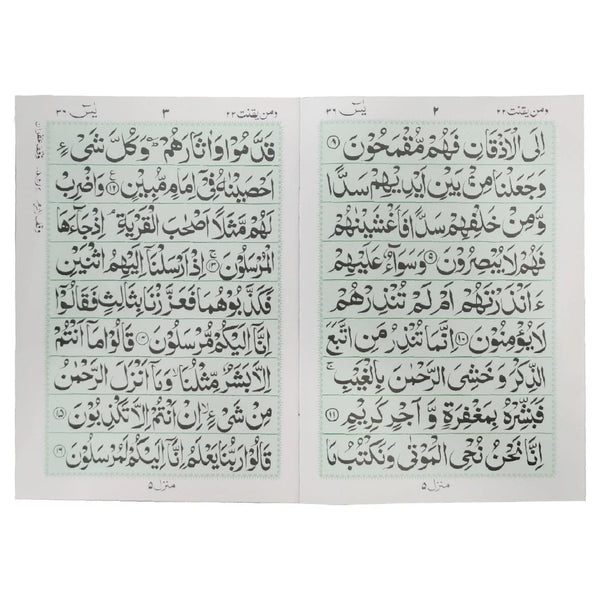 ومن يقنت ۲۲ ۲ يٰسٓ ۳۶
اِلَى الْاَذْقَانِ فَهُمْ مُّقْمَحُوْنَ ۸
وَجَعَلْنَا مِنْۢ بَيْنِ اَيْدِيْهِمْ سَدًّا
وَّمِنْ خَلْفِهِمْ سَدًّا فَاَغْشَيْنٰهُمْ
فَهُمْ لَا يُبْصِرُوْنَ ۹ وَسَوَآءٌ عَلَيْهِمْ
ءَاَنْذَرْتَهُمْ اَمْ لَمْ تُنْذِرْهُمْ
لَا يُؤْمِنُوْنَ ۱۰ اِنَّمَا تُنْذِرُ مَنِ اتَّبَعَ
الذِّكْرَ وَخَشِيَ الرَّحْمٰنَ بِالْغَيْبِ ۚ
فَبَشِّرْهُ بِمَغْفِرَةٍ وَّاَجْرٍ كَرِيْمٍ ۱۱
اِنَّا نَحْنُ نُحْيِ الْمَوْتٰى وَنَكْتُبُ مَا
منزل ۵
ومن يقنت ۲۲ ۳ يٰسٓ ۳۶
قَدَّمُوْا وَاٰثَارَهُمْ ۛ وَكُلَّ شَيْءٍ
اَحْصَيْنٰهُ فِيْٓ اِمَامٍ مُّبِيْنٍ ۱۲ ع وَاضْرِبْ
لَهُمْ مَّثَلًا اَصْحٰبَ الْقَرْيَةِ ۘ اِذْ جَآءَهَا
الْمُرْسَلُوْنَ ۱۳ ۚ اِذْ اَرْسَلْنَآ اِلَيْهِمُ اثْنَيْنِ
فَكَذَّبُوْهُمَا فَعَزَّزْنَا بِثَالِثٍ فَقَالُوْٓا
اِنَّآ اِلَيْكُمْ مُّرْسَلُوْنَ ۱۴ قَالُوْا مَآ اَنْتُمْ
اِلَّا بَشَرٌ مِّثْلُنَا ۙ وَمَآ اَنْزَلَ الرَّحْمٰنُ
مِنْ شَيْءٍ ۙ اِنْ اَنْتُمْ اِلَّا تَكْذِبُوْنَ ۱۵
قَالُوْا رَبُّنَا يَعْلَمُ اِنَّآ اِلَيْكُمْ لَمُرْسَلُوْنَ ۱۶
منزل ۵